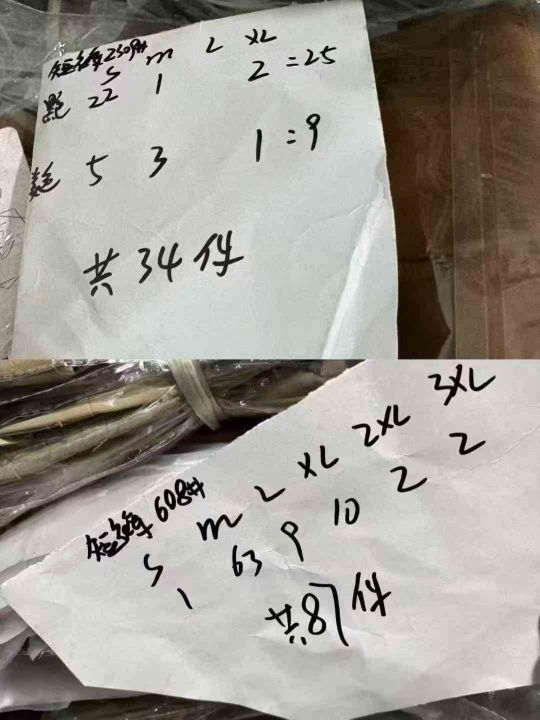 230#
S m L XL
22 1 2 = 25
5 3 1 = 9
共34件
608#
S m L XL 2XL 3XL
1 63 9 10 2 2
共87件